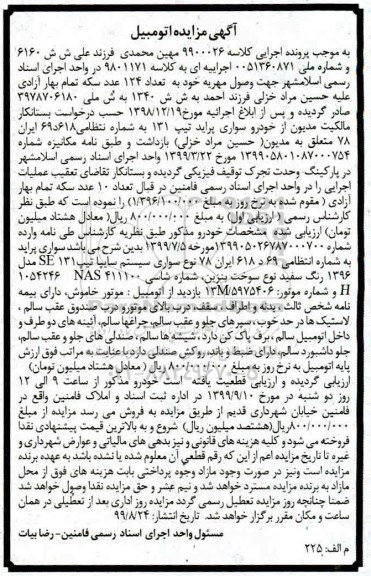 آگهی مزایده اتومبیل
به موجب پرونده اجرایی کلاسه ۹۹۰۰۰۲۶ مهین محمدی فرزند علی ش ش ۶۱۶۰
و شماره ملی ۰۰۵۱۳۶۰۸۷۱ اجراییه ای به کلاسه ۹۸۰۱۱۷۱ در واحد اجرای اسناد
رسمی اسلامشهر جهت وصول مهریه خود به تعداد ۱۲۴ عدد سکه تمام بهار آزادی
علیه حسین مراد خزلی فرزند احمد به ش ش ۱۳۴۰ به ش ملی ۳۹۷۸۷۰۶۱۸۰
صادر گردیده و پس از ابلاغ اجرائیه مورخ۱۳۹۸/۱۲/۱۹ حسب درخواست بستانکار
مالکیت مدیون از خودرو سواری پراید تیپ ۱۳۱ به شماره نتظامی۶۱۸د۶۹ ایران
۷۸ متعلق به مدیون( حسین مراد خزلی) بازداشت و طبق نامه مکانیزه شماره
۱۳۹۹۰۵۸۰۱۰۸۷۰۰۰۷۵۴ مورخ ۱۳۹۹/۳/۲۲ واحد اجرای اسناد رسمی اسلامشهر
در پارکینگ وحدت تحرک توقیف فیزیکی گردیده و بستانکار تقاضای تعقیب عملیات
اجرایی را در واحد اجرای اسناد رسمی فامنین در قبال تعداد ۱۰ عدد سکه تمام بهار
آزادی ( مقوم شده به نرخ روز به مبلغ ۱/۳۹۶/۱۰۰/۰۰۰) را نموده است که طبق نظر
کارشناس رسمی ( ارزیابی اول) به مبلغ ۸۰۰/۰۰۰/۰۰۰ ریال( معادل هشتاد میلیون
تومان) ارزیابی شده مشخصات خودرو مذکور طبق نظریه کارشناس طی نامه وارده
شماره ۱۳۹۹۰۵۰۲۶۷۸۷۰۰۰۷۰۰مورخه ۱۳۹۹/۷/۵ بدین شرح می باشد سواری پراید
به شماره انتظامی ۶۹ د ۶۱۸ ایران ۷۸ نوع سواری سیستم سایپا تیپ۱۳۱ SE مدل
۱۳۹۶ رنگ سفید نوع سوخت بنزین، شماره شاسی NAS ۴۱۱۱۰۰ ۱۰۵۴۲۴۶
H و شماره موتور: ۱۳M/۵۹۷۵۴۰۶ بازدید از اتومبیل : موتور خاموش، دارای بیمه
نامه شخص ثالث ، بدنه و اطراف ، سقف، درب بالای موتور و درب صندوق عقب سالم ،
لاستیک ها در حد خوب، سپر های جلو و عقب سالم، چراغها سالم، آئینه های دو طرف و
داخل اتومبیل سالم ، برف پاک کن دارد ، شیشه ها سالم ، صندلی های جلو و عقب سالم،
جلو داشبورد سالم، دارای ضبط و باند، روکش صندلی دارد با عنایت به مراتب فوق ارزش
پایه اتومبیل به نرخ روز به مبلغ ۸۰۰/۰۰۰/۰۰۰ ریال ( معادل هشتاد میلیون تومان)
ارزیابی گردیده و ارزیابی قطعیت یافته است خودرو مذکور از ساعت ۹ الی ۱۲
روز دو شنبه در مورخ ۱۳۹۹/۹/۱۰ در اداره ثبت اسناد و املاک فامنین واقع در
فامنین خیابان شهرداری قدیم از طریق مزایده به فروش می رسد مزایده از مبلغ
۸۰۰/۰۰۰/۰۰۰ریال(هشتصد میلیون ریال) شروع و به بالاترین قیمت پیشنهادی نقدا
فروخته می شود و کلیه هزینه های قانونی و نیز بدهی های مالیاتی و عوارض شهرداری و
غیره تا تاریخ مزایده اعم از این که رقم قطعی آن معلوم شده یا نشده باشد به عهده برنده
مزایده است ونیز در صورت وجود مازاد وجوه پرداختی بابت هزینه های فوق از محل
مازاد به برنده مزایده مسترد خواهد شد و نیم عشر و حق مزایده نقدا وصول خواهد شد
ضمنا چنانچه روز مزایده تعطیل رسمی گردد مزایده روز اداری بعد از تعطیلی در همان
ساعت و مکان مقرر برگزار خواهد شد. تاریخ انتشار: ۹۹/۸/۲۴
مسئولی واحد اجرای اسناد رسمی فامنین- رضا بیات
م الف: ۲۲۵